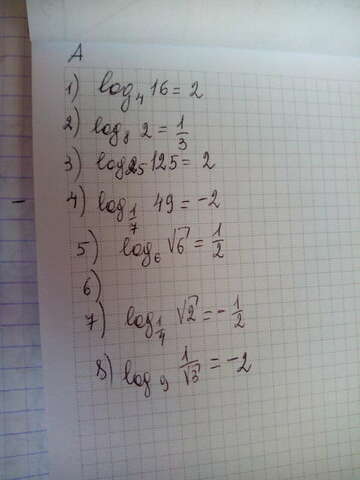 A
1) log₄ 16 = 2
2) log₈ 2 = 1/3
3) log₂₅ 125 = 2
4) log_(1/7) 49 = -2
5) log₆ √6 = 1/2
6)
7) log_(1/4) √2 = -1/2
8) log₉ 1/√3 = -2